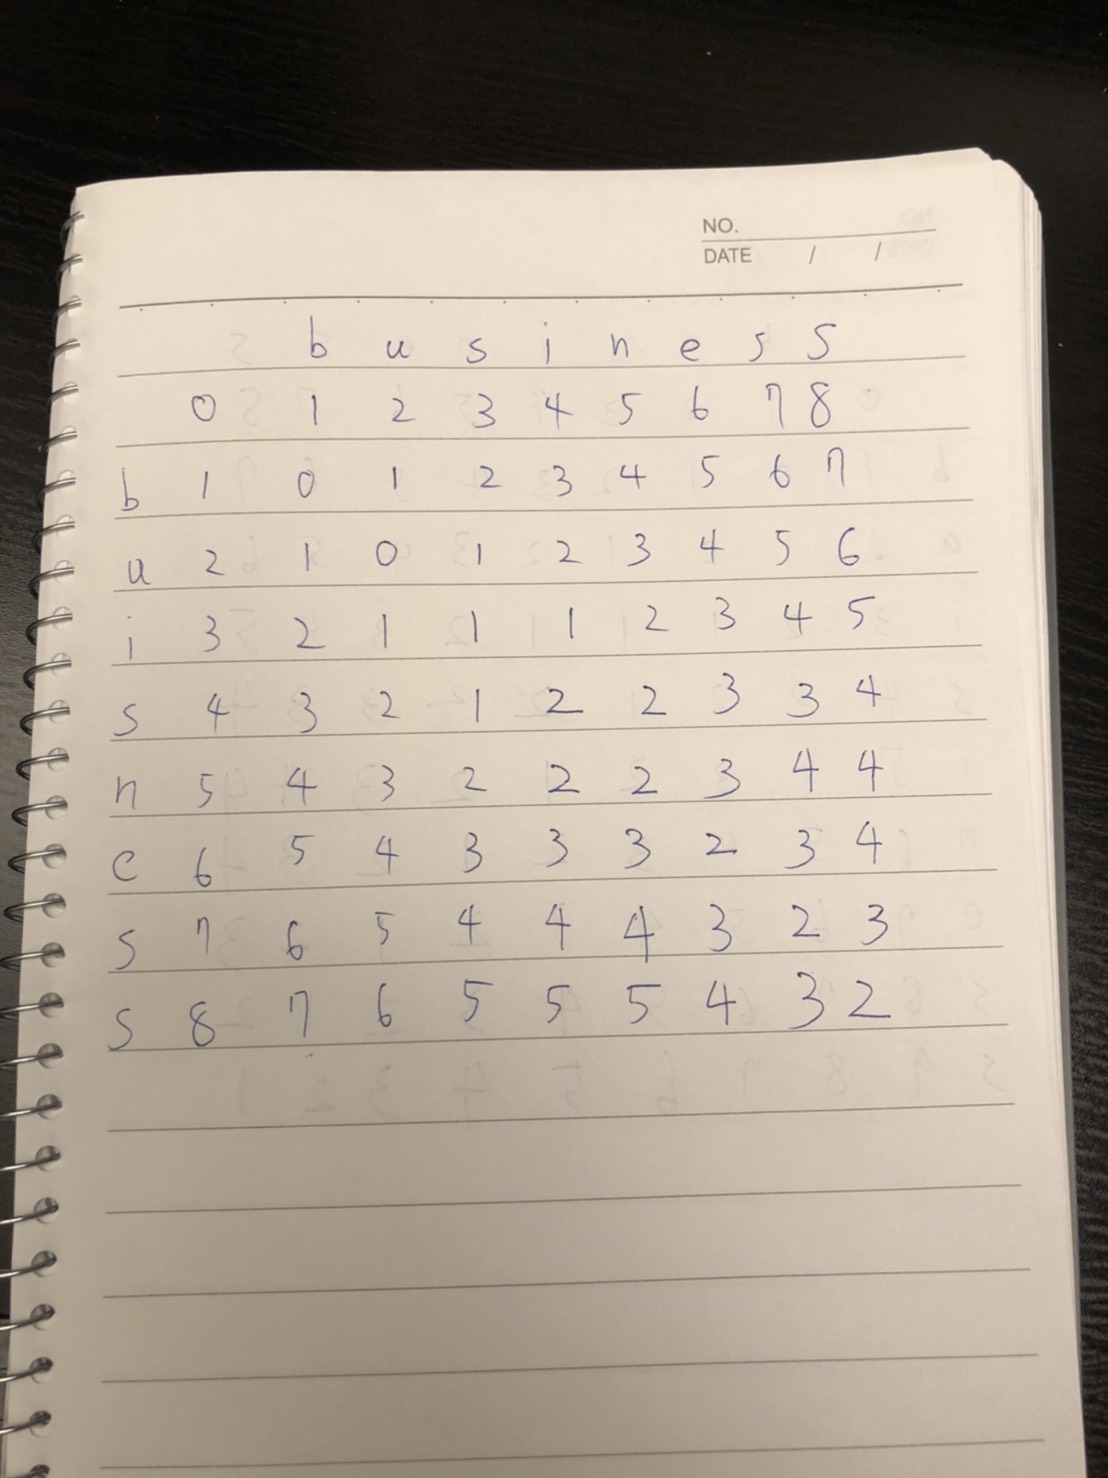 NO.
DATE / /
b u s i n e s s
0 1 2 3 4 5 6 7 8
b 1 0 1 2 3 4 5 6 7
u 2 1 0 1 2 3 4 5 6
i 3 2 1 1 1 2 3 4 5
s 4 3 2 1 2 2 3 3 4
n 5 4 3 2 2 2 3 4 4
e 6 5 4 3 3 3 2 3 4
s 7 6 5 4 4 4 3 2 3
s 8 7 6 5 5 5 4 3 2